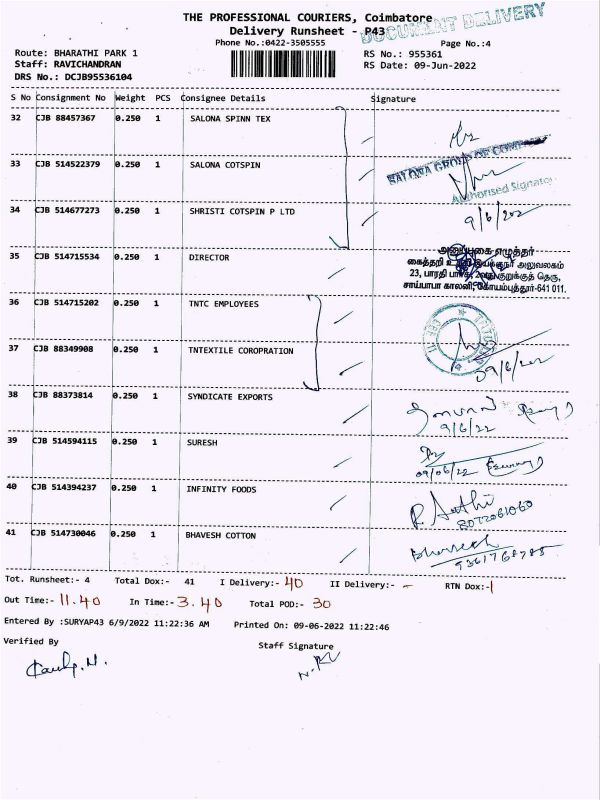 THE PROFESSIONAL COURIERS, Coimbatore
DOCUMENT DELIVERY
Delivery Runsheet - P43
Phone No.:0422-3505555 Page No.:4
Route: BHARATHI PARK 1 RS No.: 955361
Staff: RAVICHANDRAN RS Date: 09-Jun-2022
DRS No.: DCJB95536104
S No Consignment No Weight PCS Consignee Details Signature
32 CJB 88457367 0.250 1 SALONA SPINN TEX
SALONA GROUP OF COMPANY
33 CJB 514522379 0.250 1 SALONA COTSPIN
Authorised Signator
34 CJB 514677273 0.250 1 SHRISTI COTSPIN P LTD
9/6/202
35 CJB 514715534 0.250 1 DIRECTOR
கைத்தறி அலுவலகம்
23, பாரதி குறுக்குத் தெரு,
சாய்பாபா காலனி, கோயம்புத்தூர்-641 011.
36 CJB 514715202 0.250 1 TNTC EMPLOYEES
37 CJB 88349908 0.250 1 TNTEXTILE COROPRATION
09/6/202
38 CJB 88373814 0.250 1 SYNDICATE EXPORTS
9/6/22
39 CJB 514594115 0.250 1 SURESH
09/06/22
40 CJB 514394237 0.250 1 INFINITY FOODS
R. Aathi
8072061060
41 CJB 514730046 0.250 1 BHAVESH COTTON
Bhavesh
9361768785
Tot. Runsheet:- 4 Total Dox:- 41 I Delivery:- 40 II Delivery:- - RTN Dox:-1
Out Time:- 11.40 In Time:- 3.40 Total POD:- 30
Entered By :SURYAP43 6/9/2022 11:22:36 AM Printed On: 09-06-2022 11:22:46
Verified By Staff Signature